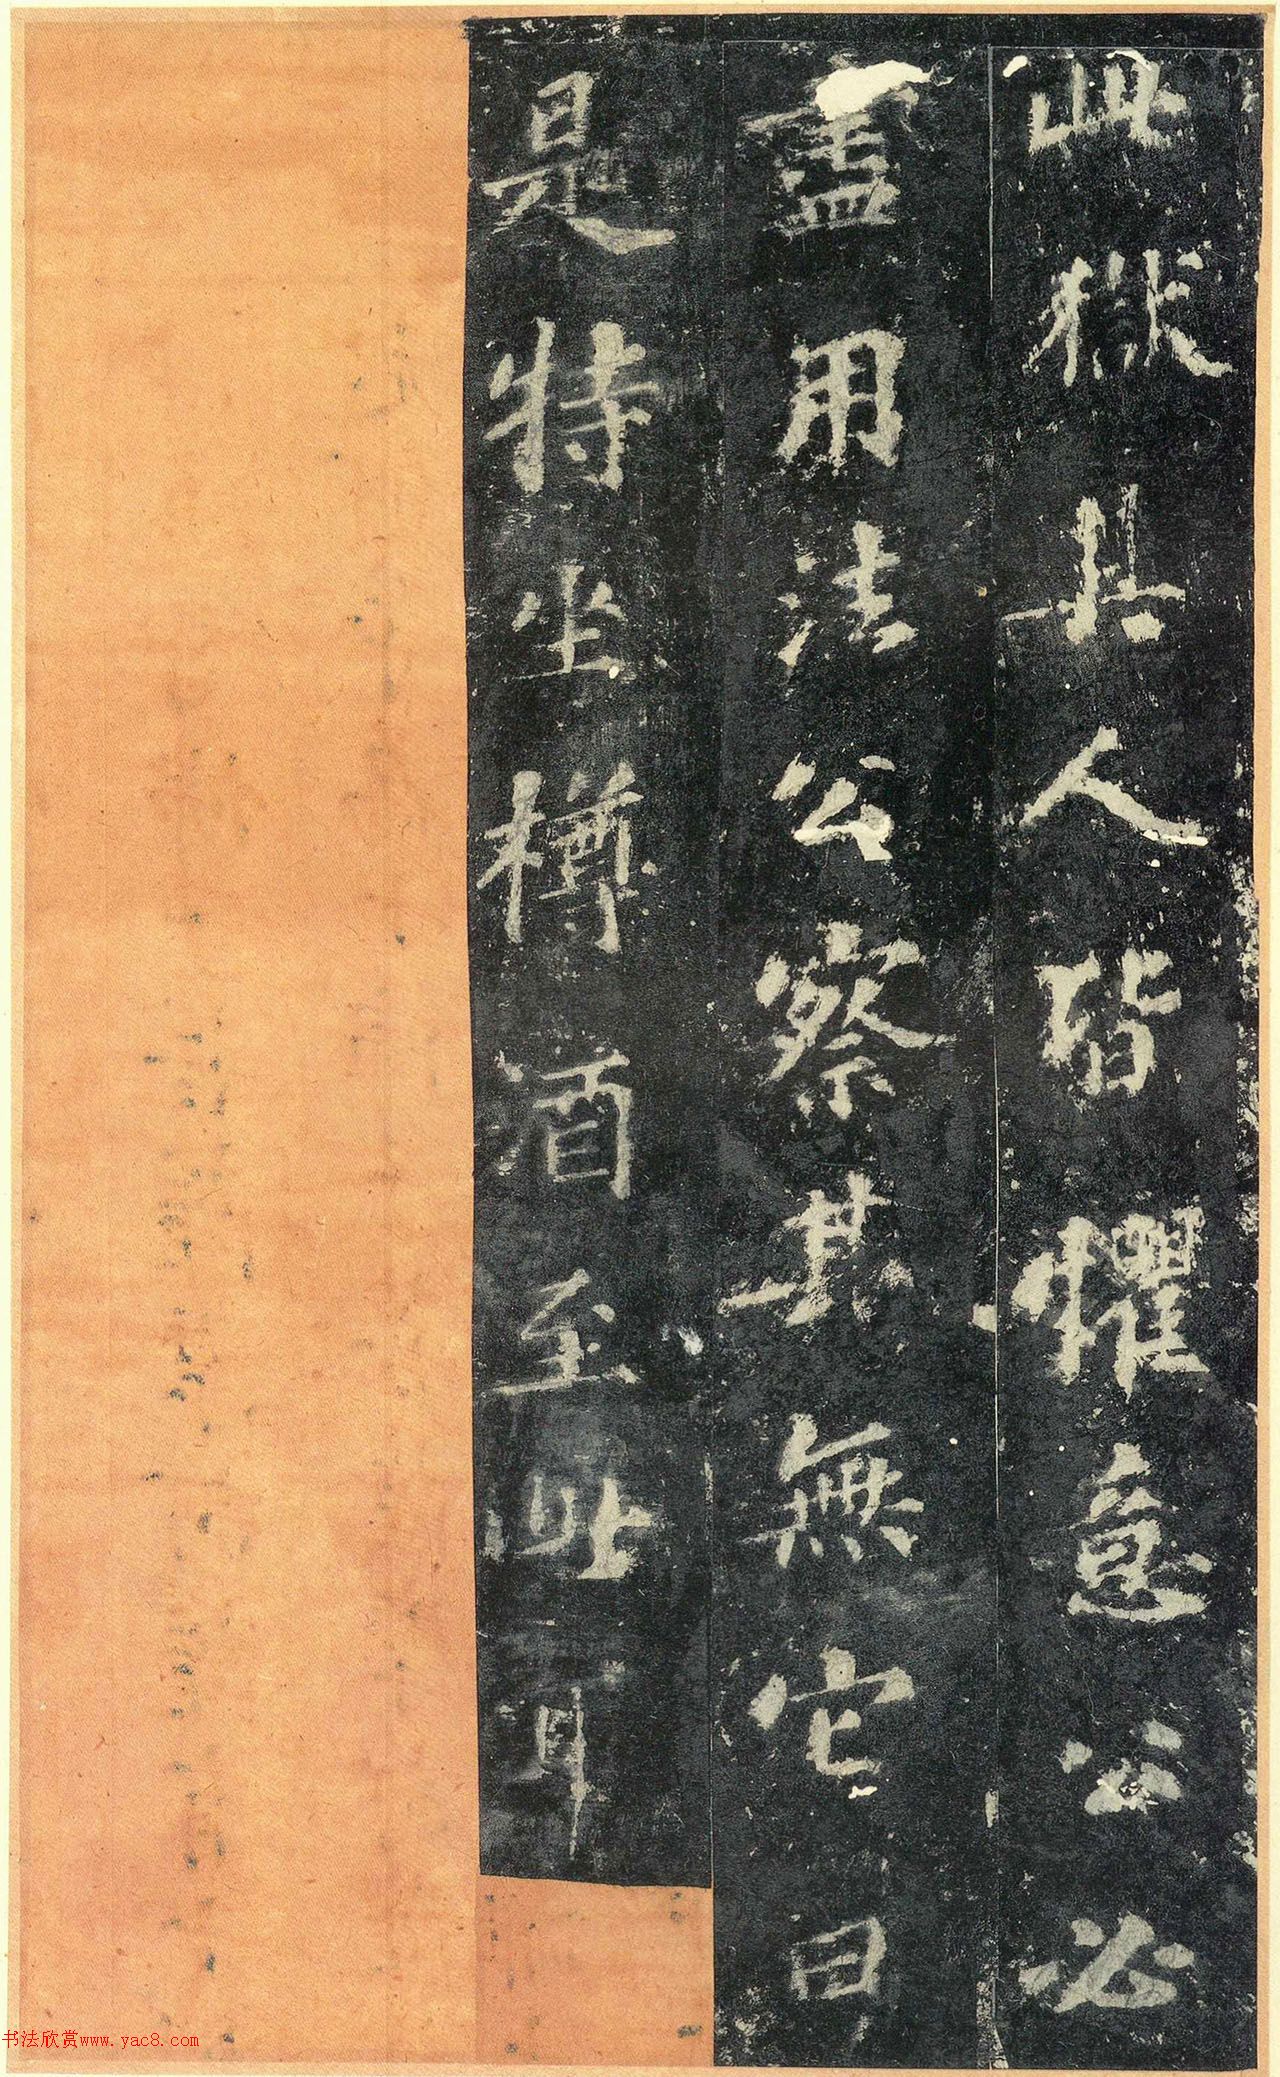 此獄其人皆懼意公必
盡用法公察其無它曰
是特坐樽酒至此耳
书法欣赏www.yac8.com